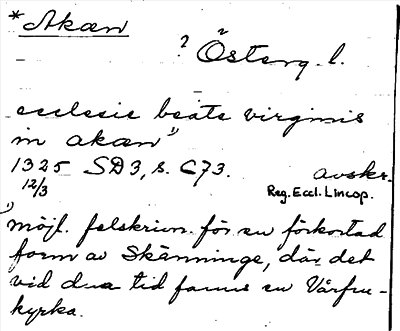 *Akæn
? Österg. l.
ecclesie beate virginis
in akæn¹⁾
1325 SD3, s. 673. avskr.
12/3 Reg. Eccl. Lincop.
¹⁾möjl. felskrivn. för en förkortad
form av Skänninge, där det
vid dna tid fanns en Vårfru-
kyrka.